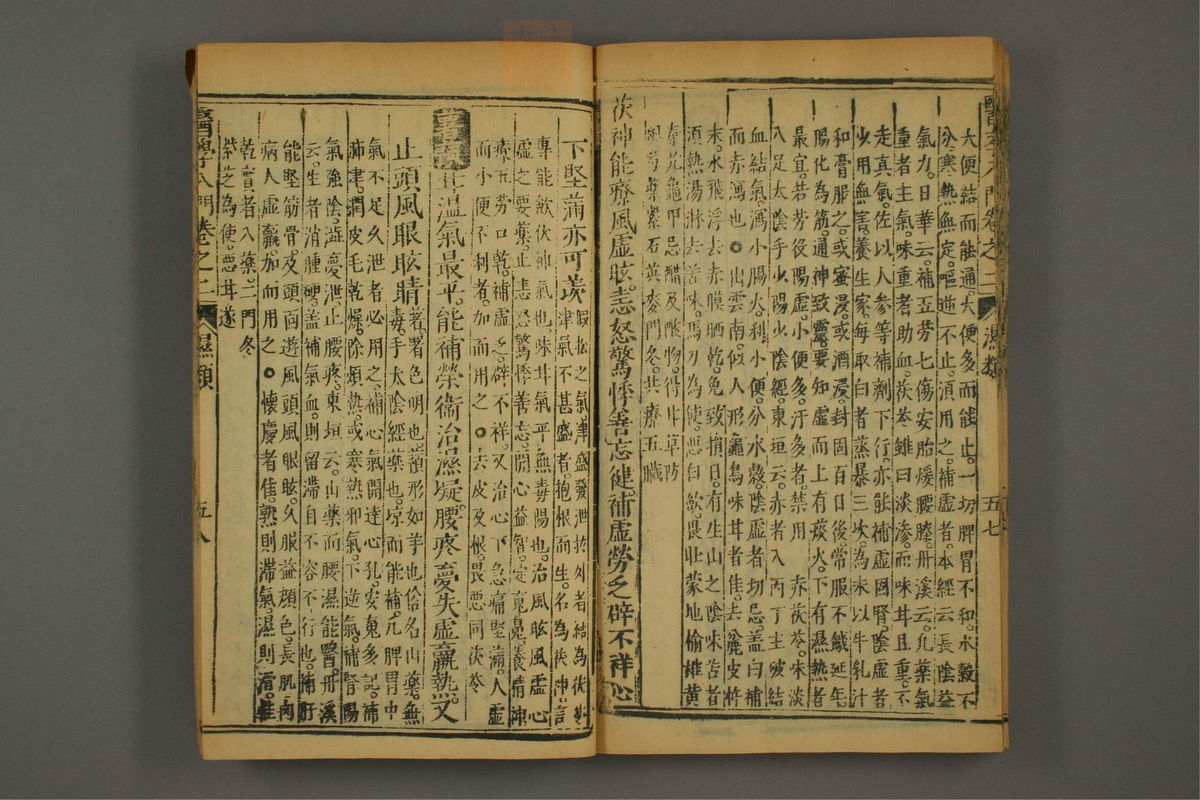 醫學入門卷之二 濕類 五七
大便結而能通大便多而能止一切脾胃不和水穀不
分寒熱無定嘔逆不止須用之補虛者本經云長陰益
氣力日華云補五勞七傷安胎煖腰膝丹溪云凡藥氣
重者主氣味重者助血茯苓雖曰淡滲而味甘且重不
走真氣佐以人參等補劑下行亦能補虛固腎陰虛者
少用無害養生家每取白者蒸暴三次為末以牛乳汁
和膏服之或蜜浸或酒浸封固百日後常服不饑延年
腸化為筋通神致靈要知虛而上有痰火下有濕熱者
最宜若勞役陽虛小便多汗多者禁用 赤茯苓味淡
入足太陰手少陽少陰經東垣云赤者入丙丁主破結
血結氣瀉小腸火利小便分水穀陰虛者切忌蓋白補
而赤瀉也○出雲南似人形龜鳥味甘者佳去麁皮杵
末水飛浮去赤膜晒乾免致損目有生山之陰味苦者
須熱湯淋去苦味馬刀為使惡白歛畏牡蒙地榆雄黃
秦艽龜甲忌醋及酸物得甘草防
風芍藥紫石英麥門冬共療五臟
茯神能療風虛眩恚怒驚悸善忘健補虛勞之辟不祥心
下堅滿亦可羨假松之氣津盛發泄於外者結為茯苓
津氣不甚盛者抱根而生名為茯神言
專能歛伏神氣也味甘氣平無毒陽也治風眩風虛心
虛之要藥止恚怒驚悸善忘開心益智定魂魄養精神
療五勞口乾補虛乏辟不祥又治心下急痛堅滿人虛
而小便不利者加而用之○去皮及根畏惡同茯苓
甘溫氣最平能補榮衛治濕凝腰疼夢失虛羸熱又
止頭風眼眩睛著署色明也蕷形如芋也俗名山藥無
毒手太陰經藥也凉而能補凡脾胃中
氣不足久泄者必用之補心氣開達心孔安魂多記補
肺津潤皮毛乾燥除煩熱或寒熱邪氣下逆氣補腎陽
氣強陰益夢泄止腰疼東垣云山藥而腰濕能醫丹溪
云生者消腫硬蓋補氣血則留滯自不容不行也補肝
能堅筋骨及頭面遊風頭風眼眩久服益顏色長肌肉
病人虛羸加而用之○懷慶者佳熟則滯氣濕則滑惟
乾實者入藥二門冬
紫芝為使惡甘遂
醫學入門卷之二 濕類 五八